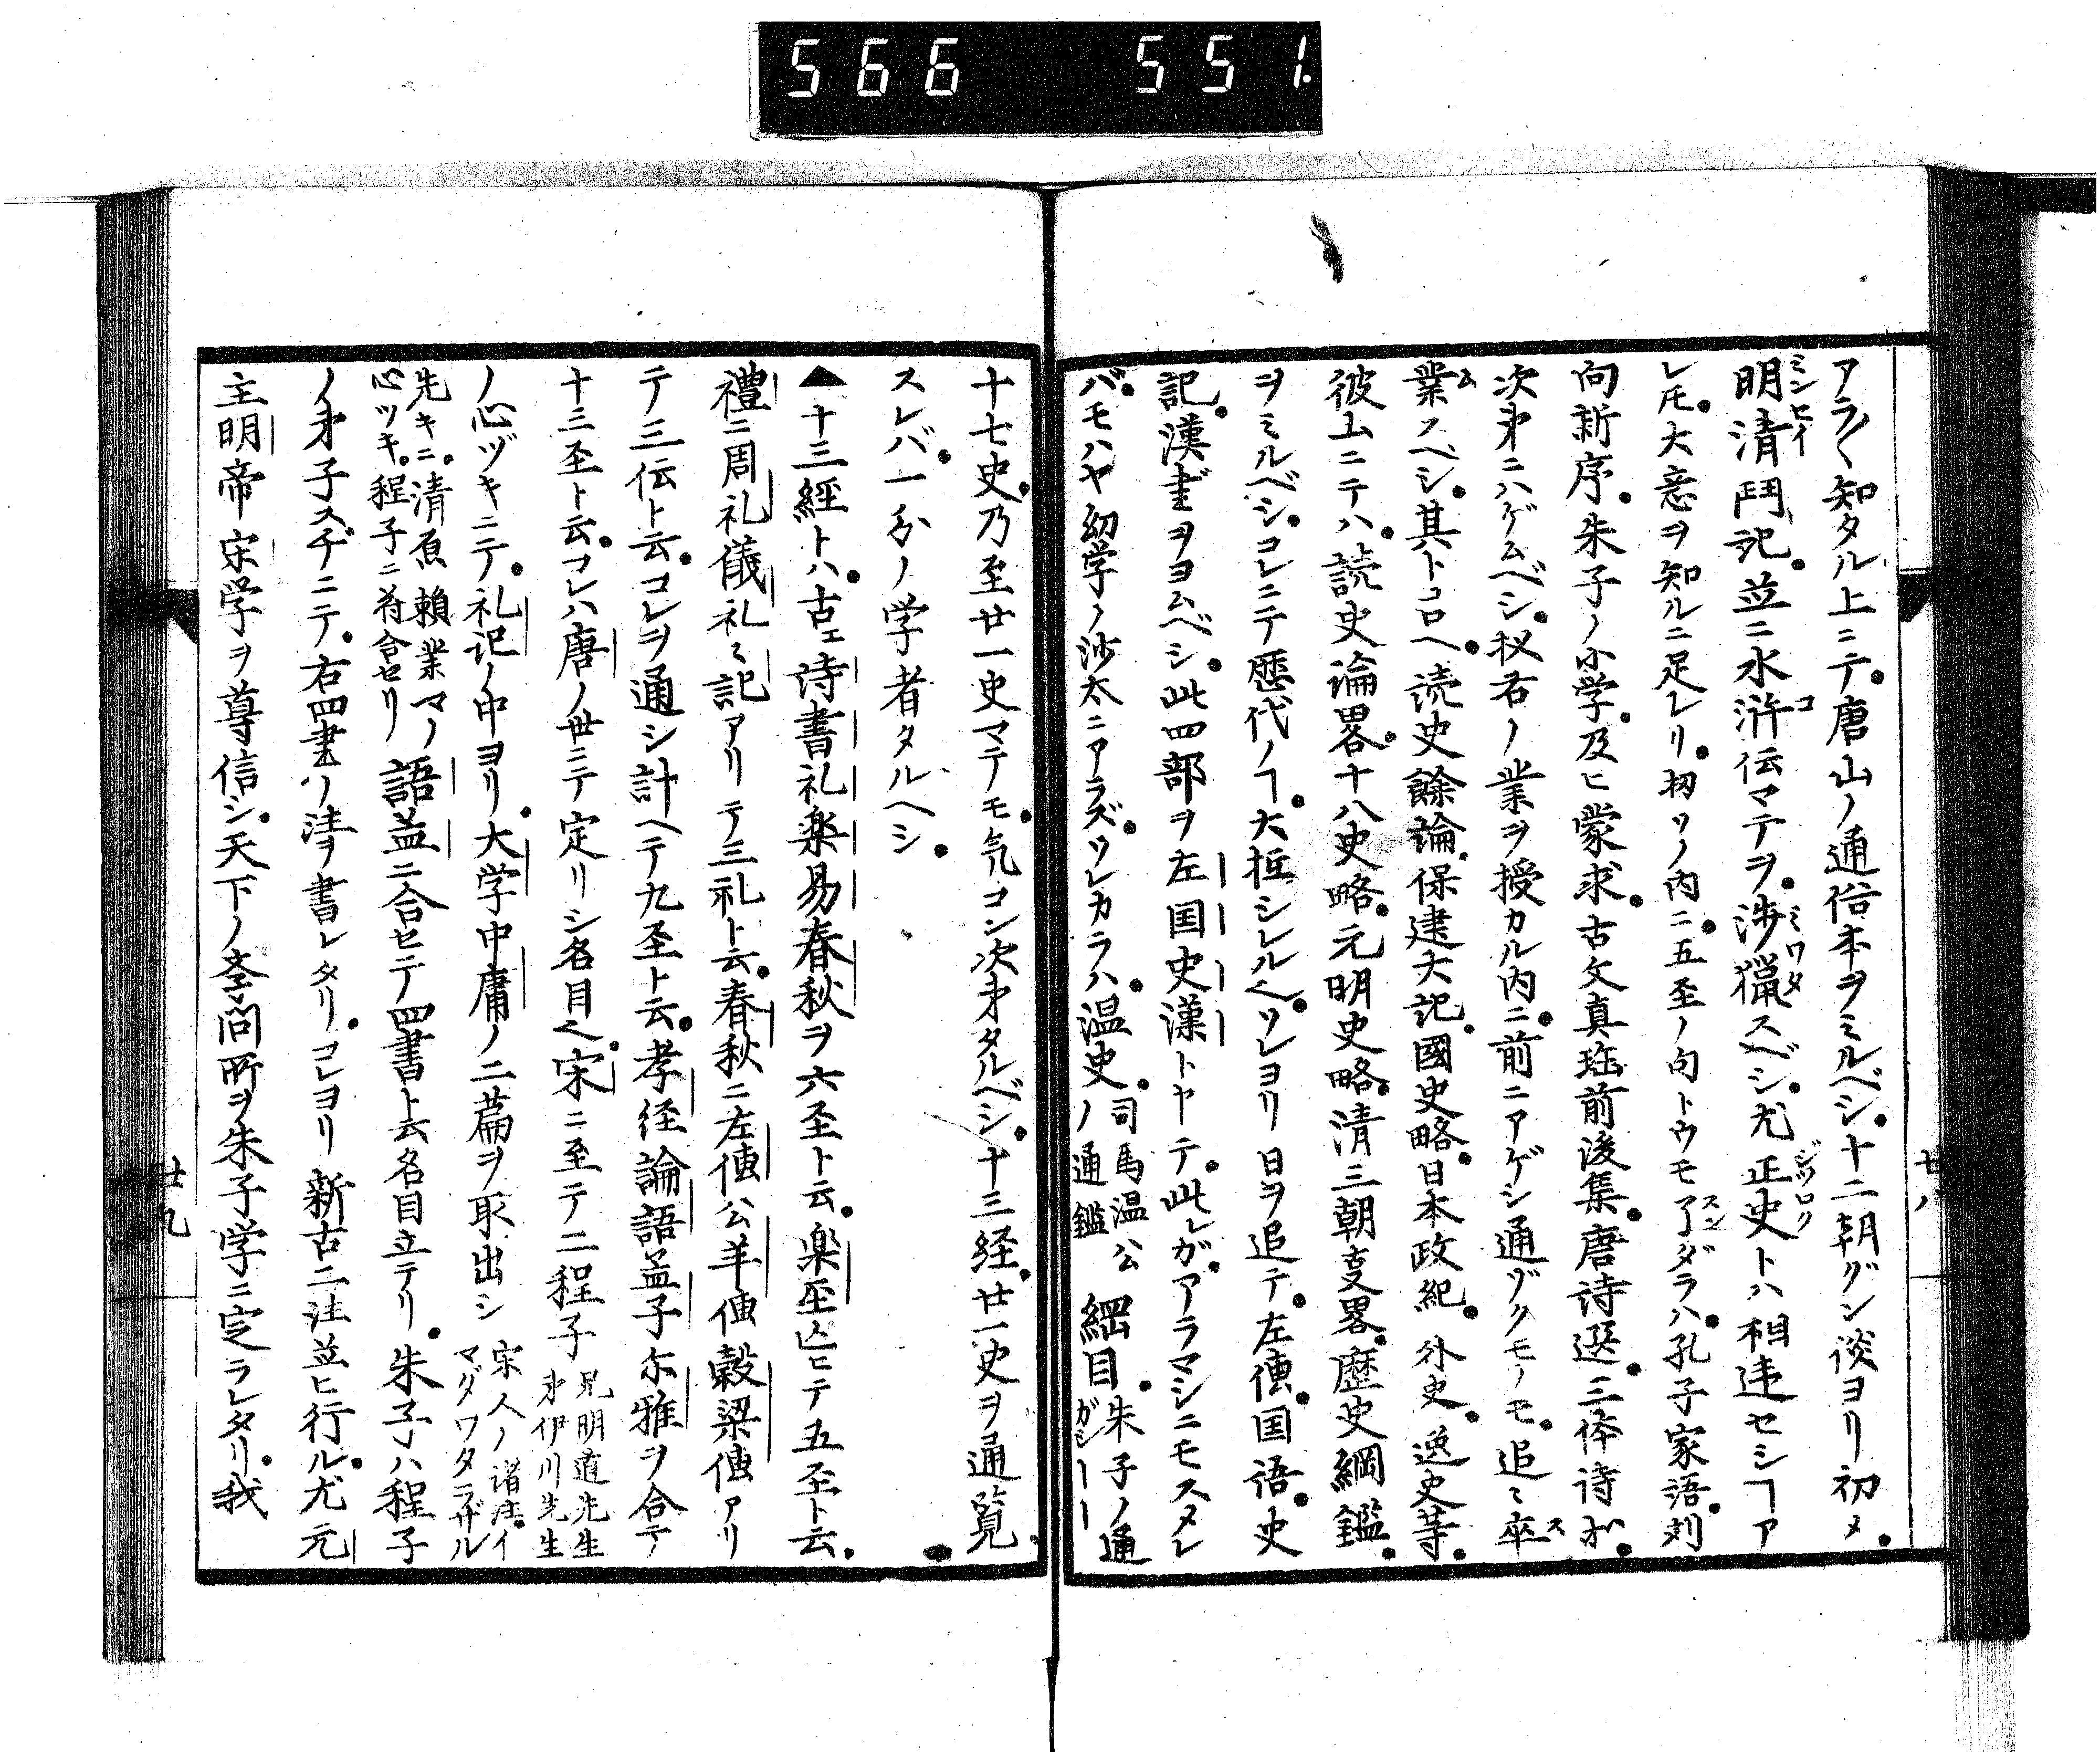 566 551.
アラ〱知タル上ニテ。唐山ノ通俗本ヲミルベシ。十二朝グン談ヨリ初メ。
明清闘記。並ニ水滸伝マテヲ。渉猟スベシ。尤正史トハ相違セシヿア
ミンセイ コ ミワタ ジツロク
レ𪜈。大意ヲ知ルニ足レリ。扨ソノ内ニ。五至ノ句トウモ了ダラハ。孔子家語。刘
スン
向新序。朱子ノ小学。及ヒ蒙求。古文真珤前後集。唐詩選。三体詩ホ。
次第ニハゲムベシ。扨右ノ業ヲ授カル内ニ。前ニアゲシ通ヅクモノモ。追ミ卒
ス
業スベシ。其トコロヘ。読史餘論。保建大記。國史略。日本政紀。外史。逸史等。
彼土ニテハ。読史論畧。十八史略。元明史略。清三朝事畧。歴史綱鑑。
ヲミルベシ。コレニテ歴代ノヿ。大抵シレルベシ。ソレヨリ日ヲ追テ。左傳。国語。史
記。漢書ヲヨムベシ。此四部ヲ左国史漢トヤテ。此レガ。アラマシニモスメレ
バ。モハヤ幼学ノ沙太ニアラズ。ソレカラハ。温史。司馬温公ノ通鑑 綱目。朱子ノ通ガン――
廿八
十七史。乃至廿一史マテモ。気コン次第タルベシ。十三経。廿一史ヲ通覧
スレバ。一分ノ学者タルヘシ。
▲十三經トハ。古エ詩書礼楽易春秋ヲ六至ト云。楽至亡ヒテ五至ト云。
禮ニ周礼儀礼ミ記アリテ三礼ト云。春秋ニ左傳公羊傳穀梁傳アリ
テ三伝ト云。コレヲ通シ計ヘテ九至ト云。孝径論語孟子尓雅ヲ合テ
十三至ト云。コレハ唐ノ世ニテ定リシ名目也。宋ニ至テ二程子 兄明道先生 弟伊川先生
ノ心ヅキニテ。礼記ノ中ヨリ。大学中庸ノ二篇ヲ取出シ 宋人ノ諸註。イマダワタラザル
先キニ。清原頼業マノ心ツキ。程子ニ符合セリ 語孟ニ合セテ四書ト云名目立テリ。朱子ハ程子
ノ弟子スヂニテ。右四書ノ注ヲ書レタリ。コレヨリ新古二注並ヒ行ル。尤元
主明帝宋学ヲ尊信シ。天下ノ学問所ヲ朱子学ニ定ラレタリ。我
廿九